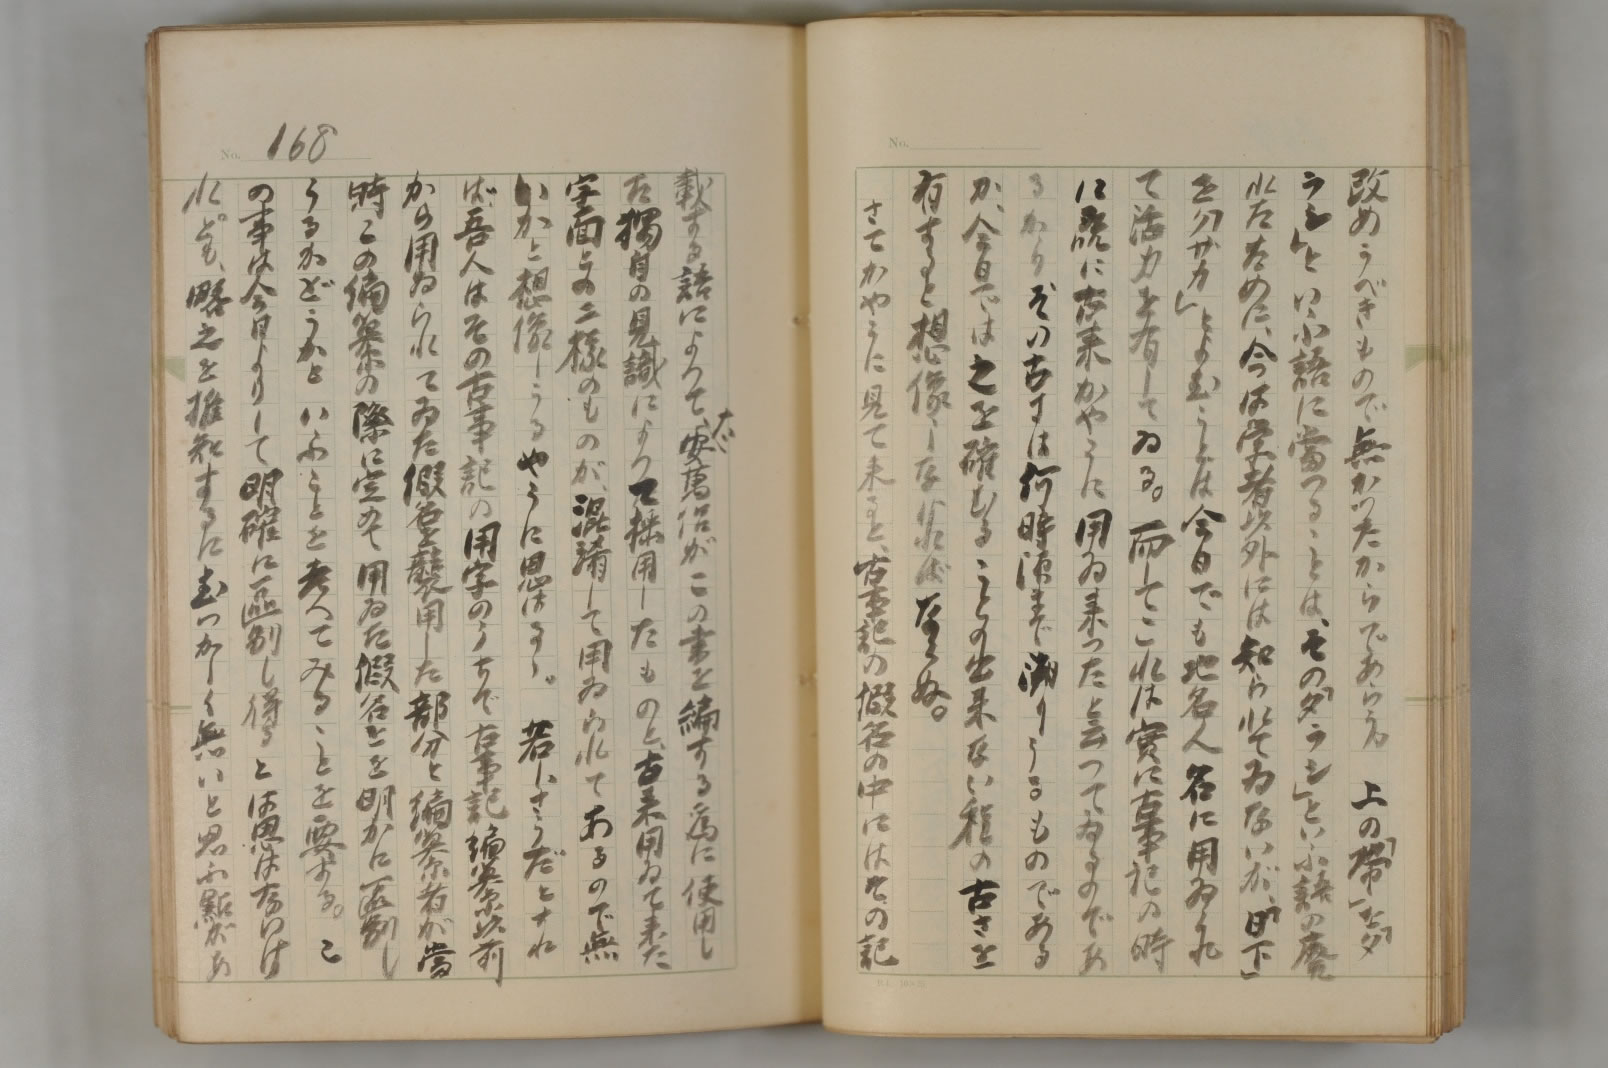 改めうべきもので無かつたからであらう。上の「帯」を「タ
ラシ」といふ語に當つることは、その「タラシ」といふ語の廃
れたために、今は学者以外には知られてゐないが、「日下」
を「クサカ」とよむことは今日でも地名人名に用ゐられ
て活力を有してゐる。而してこれは實に古事記の時
に既に古来かやうに用ゐ来つたと云つてゐるのであ
るから、ずい古すは何時頃まで溯りうるものである
か、今日では之を確むることの出来ない程の古さを
有すると想像しなければならぬ。
さてかやうに見て来ると、古事記の假名の中にはその記
No.
No. 168
載する語によつて、太安萬侶がこの書を編する為に使用し
た獨自の見識によつて採用したものと、古来用ゐて来た
字面との二様のものが、混淆して用ゐられてあるので無
いかと想像しうるやうに思はるゝ。若しさうだとすれ
ば、吾人はその古事記の用字のうちで古事記編纂以前
から用ゐられてゐた假名を襲用した部分と編纂者が當
時この編纂の際に定めて用ゐた假名とを明かに區別し
うるかどうかといふことを考へてみることを要する。こ
の事は今日よりして明確に區別し得るとは思はないけ
れども、略之を推知するに難かしく無いと思ふ點があ